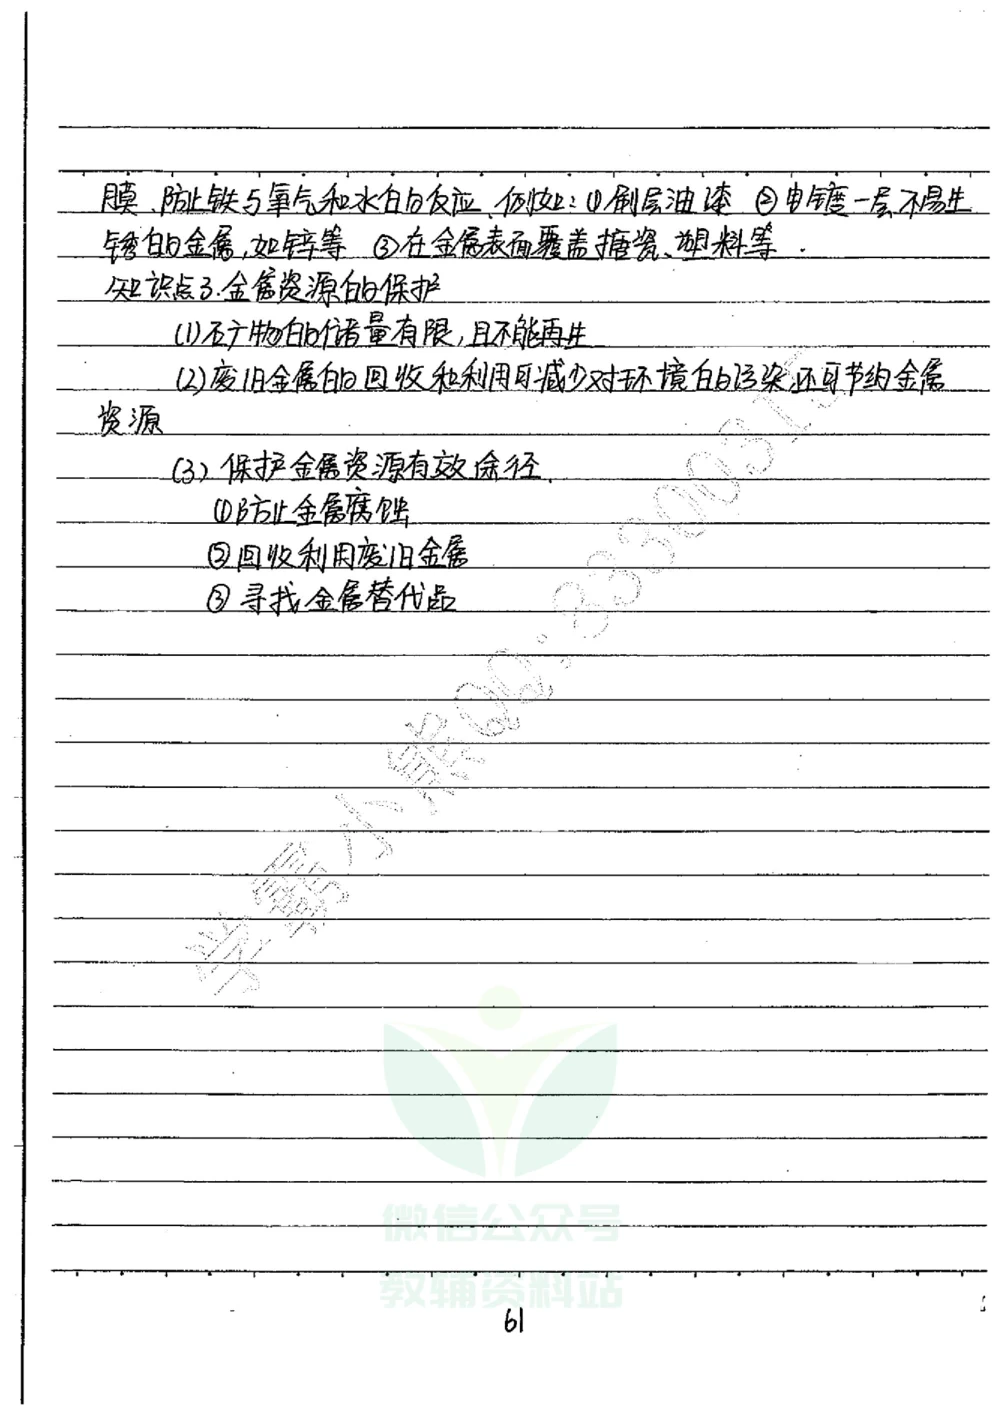 膜、防止铁与氧气和水的反应、例如:①刷层油漆 ②电镀一层不易生
锈的金属,如锌等 ③在金属表面覆盖搪瓷、塑料等.
知识点3.金属资源的保护
(1)矿物的储量有限,且不能再生
(2)废旧金属的回收和利用可减少对环境的污染,还可节约金属
资源
(3)保护金属资源有效途径.
①防止金属腐蚀
②回收利用废旧金属
③寻找金属替代品
学霸小熊QQ:3330031
微信公众号
教辅资料站
61